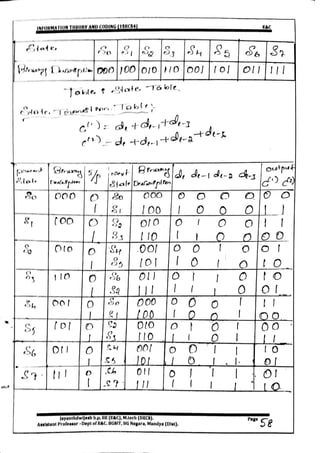 INFORMATION THEORY AND CODING (15EC54) E&C
State S0 S1 S2 S3 S4 S5 S6 S7
Binary Description 000 100 010 110 001 101 011 111
Table : State Table
State Transition Table:-
C(1) = dt + dt-1 + dt-3
C(2) = dt + dt-1 + dt-2 + dt-3
present State Binary Description I/p Next State Binary Description dt dt-1 dt-2 dt-3 Output C(1) C(2)
S0 000 0 S0 000 0 0 0 0 0 0
1 S1 100 1 0 0 0 1 1
S1 100 0 S2 010 0 1 0 0 1 1
1 S3 110 1 1 0 0 0 0
S2 010 0 S4 001 0 0 1 0 0 1
1 S5 101 1 0 1 0 1 0
S3 110 0 S6 011 0 1 1 0 1 0
1 S7 111 1 1 1 0 0 1
S4 001 0 S0 000 0 0 0 1 1 1
1 S1 100 1 0 0 1 0 0
S5 101 0 S2 010 0 1 0 1 0 0
1 S3 110 1 1 0 1 1 1
S6 011 0 S4 001 0 0 1 1 1 0
1 S5 101 1 0 1 1 0 1
S7 111 0 S6 011 0 1 1 1 0 1
1 S7 111 1 1 1 1 1 0
Jayanthdwijesh h.p, BE (E&C), M.tech (DECS).
Assistant Professor -Dept of E&C. BGSIT, BG Nagara, Mandya (Dist).
Page 58